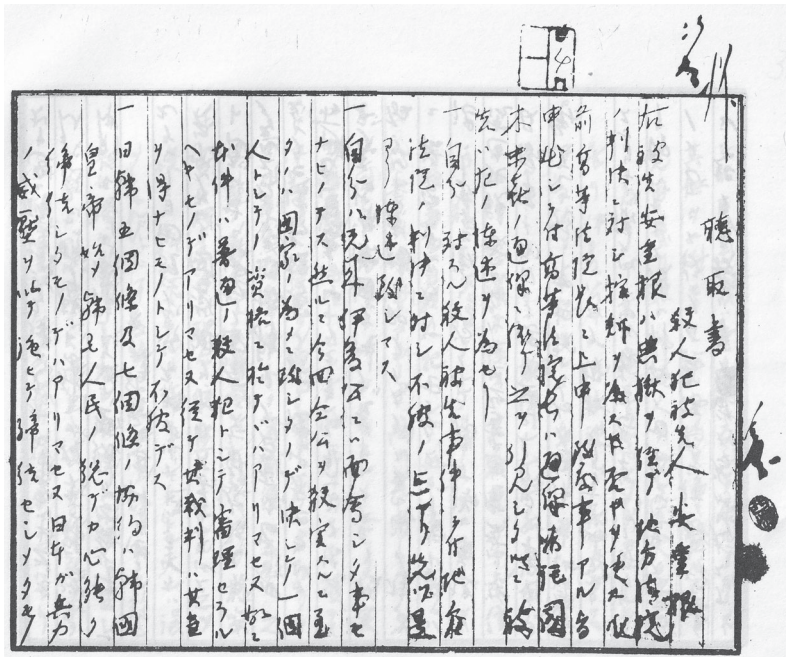 聽取書
殺人犯被告人 安重根
右被告安重根ハ典獄ヲ經テ地方法院
ノ判決ニ對シ控訴ヲ為スヤ否ヤヲ決スル
前高等法院長ニ上申致度事アル旨
申出シニ付高等法院長ハ通譯
末喜ノ通譯ニ依リ之ヲ引見シタルニ被
告ハ左ノ陳述ヲ為セリ
一 自分ニ對スル殺人被告事件ニ付地方
法院ノ判決ニ對シ不服ノ点アリ先以是
ヨリ陳述致シマス
一 自分ハ元來伊藤公ニハ面會シタ事モ
ナヒノデス然ルニ今回仝公ヲ殺害スルニ至
タノハ國家ノ為メニ致シタノデ決シテ一個
人トシテノ資格ニ於テデハアリマセヌ故ニ
本件ハ普通ノ殺人犯トシテ審理セラル
ヘキモノデアリマセヌ從テ其裁判ハ其當
ヲ得ナヒモノトシテ不服デス
一 日韓五個條及七個條ノ協約ハ韓國
皇帝始メ韓國人民ノ總テカ心能ク
締結シタモノデハアリマセヌ日本が兵力
ノ威壓ヲ以テ強ヒテ締結セシメタモノ
4